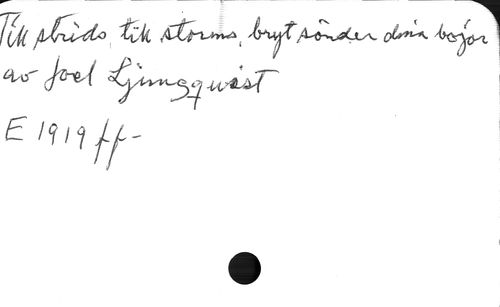 Till strids, till storms, bryt sönder dina bojor
av Joel Ljungqvist
E 1919 ff-